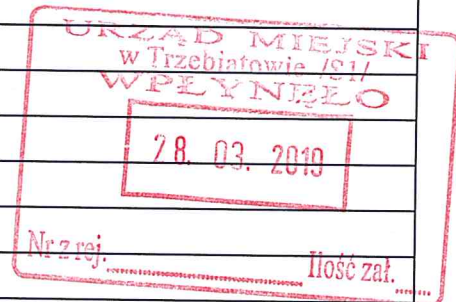 URZĄD MIEJSKI
w Trzebiatowie /S1/
WPŁYNĘŁO
28. 03. 2019
Nr z rej. ............ Ilość zał. ......